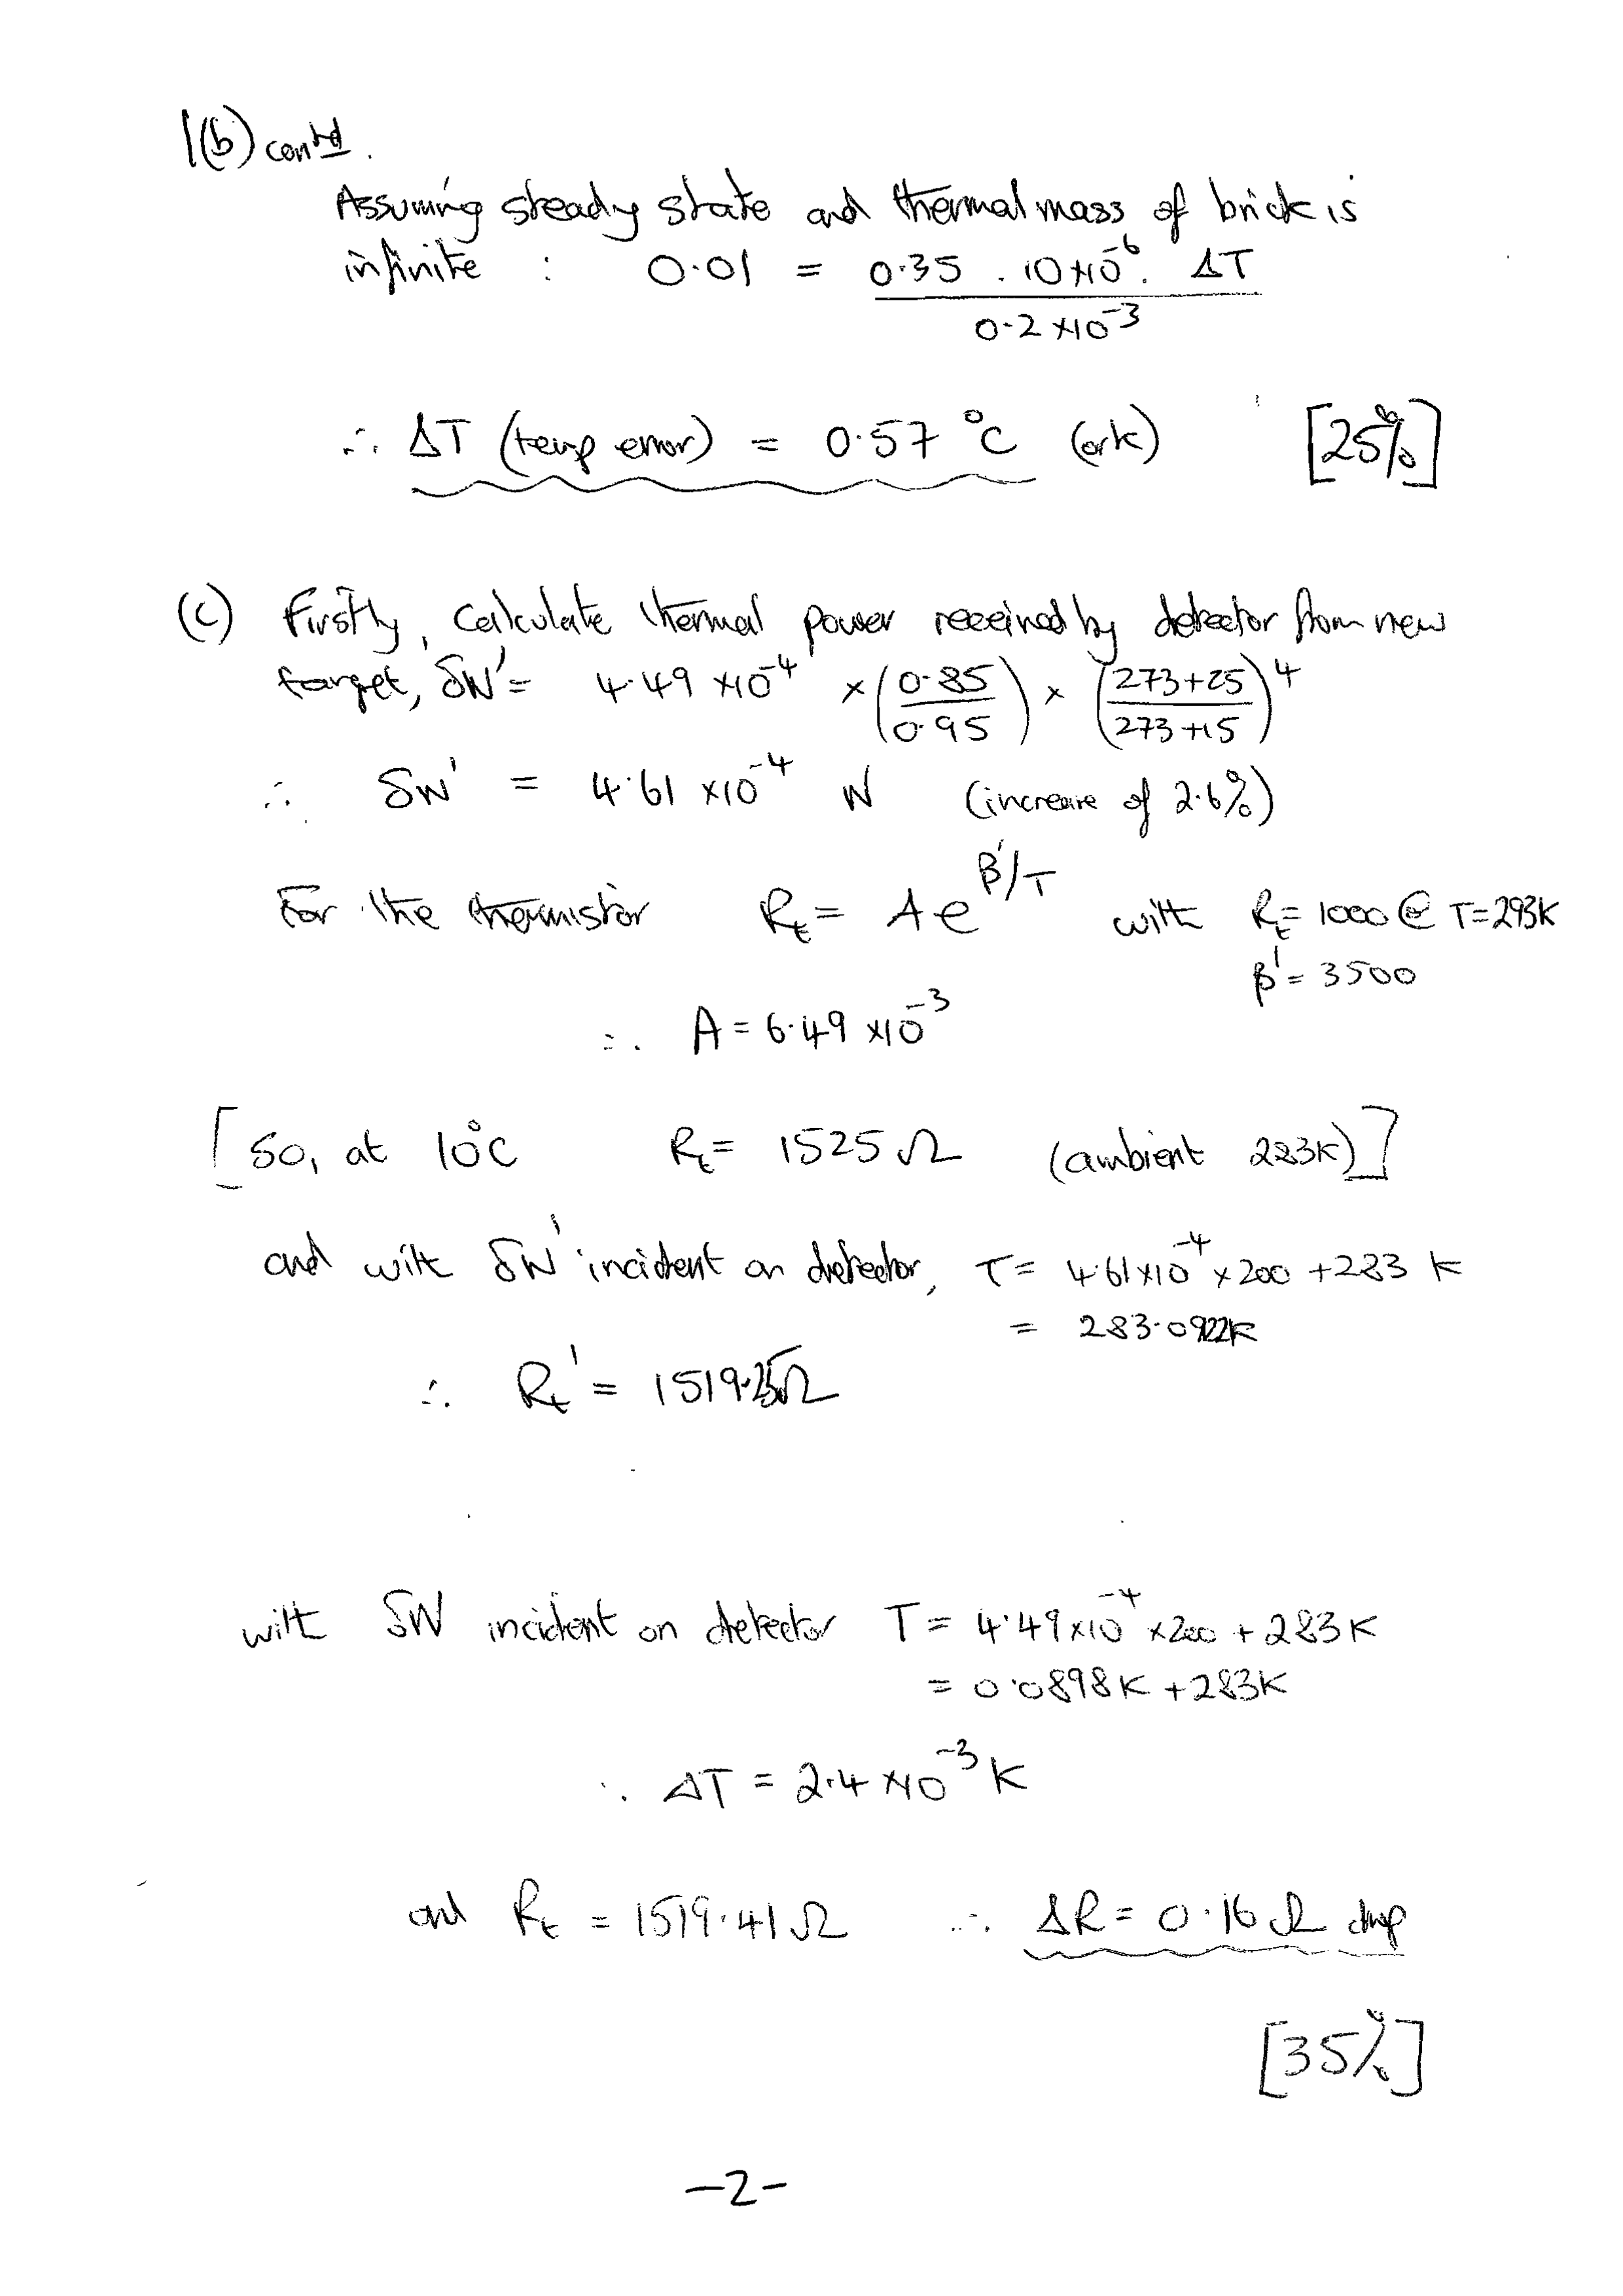 1(b) contd.
Assuming steady state and thermal mass of brick is
infinite : 0.01 = 0.35 . 10×10⁻⁶ . ΔT / 0.2×10⁻³
∴ ΔT (temp error) = 0.57 °C (or K) [25%]
(c) Firstly, calculate thermal power received by detector from new
target, δW' = 4.49 ×10⁻⁴ × (0.85/0.95) × (273+25/273+15)⁴
∴ δW' = 4.61 ×10⁻⁴ W (increase of 2.6%)
For the thermistor Rt = A e^(β'/T) with Rt = 1000 @ T=293K
β' = 3500
∴ A = 6.49 ×10⁻³
[So, at 10°C Rt = 1525 Ω (ambient 283K)]
and with δW' incident on detector, T = 4.61×10⁻⁴ × 200 + 283 K
= 283.0922K
∴ Rt' = 1519.25Ω
with δW incident on detector T = 4.49×10⁻⁴ ×200 + 283K
= 0.0898K + 283K
∴ ΔT = 2.4 ×10⁻³ K
and Rt = 1519.41Ω ∴ ΔR = 0.16 Ω drop
[35%]
-2-